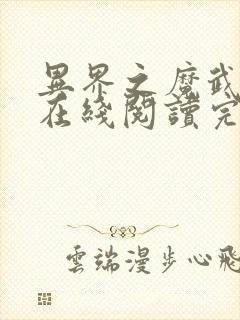 異界之魔武
在綫閱讀完
雲端漫步心飛